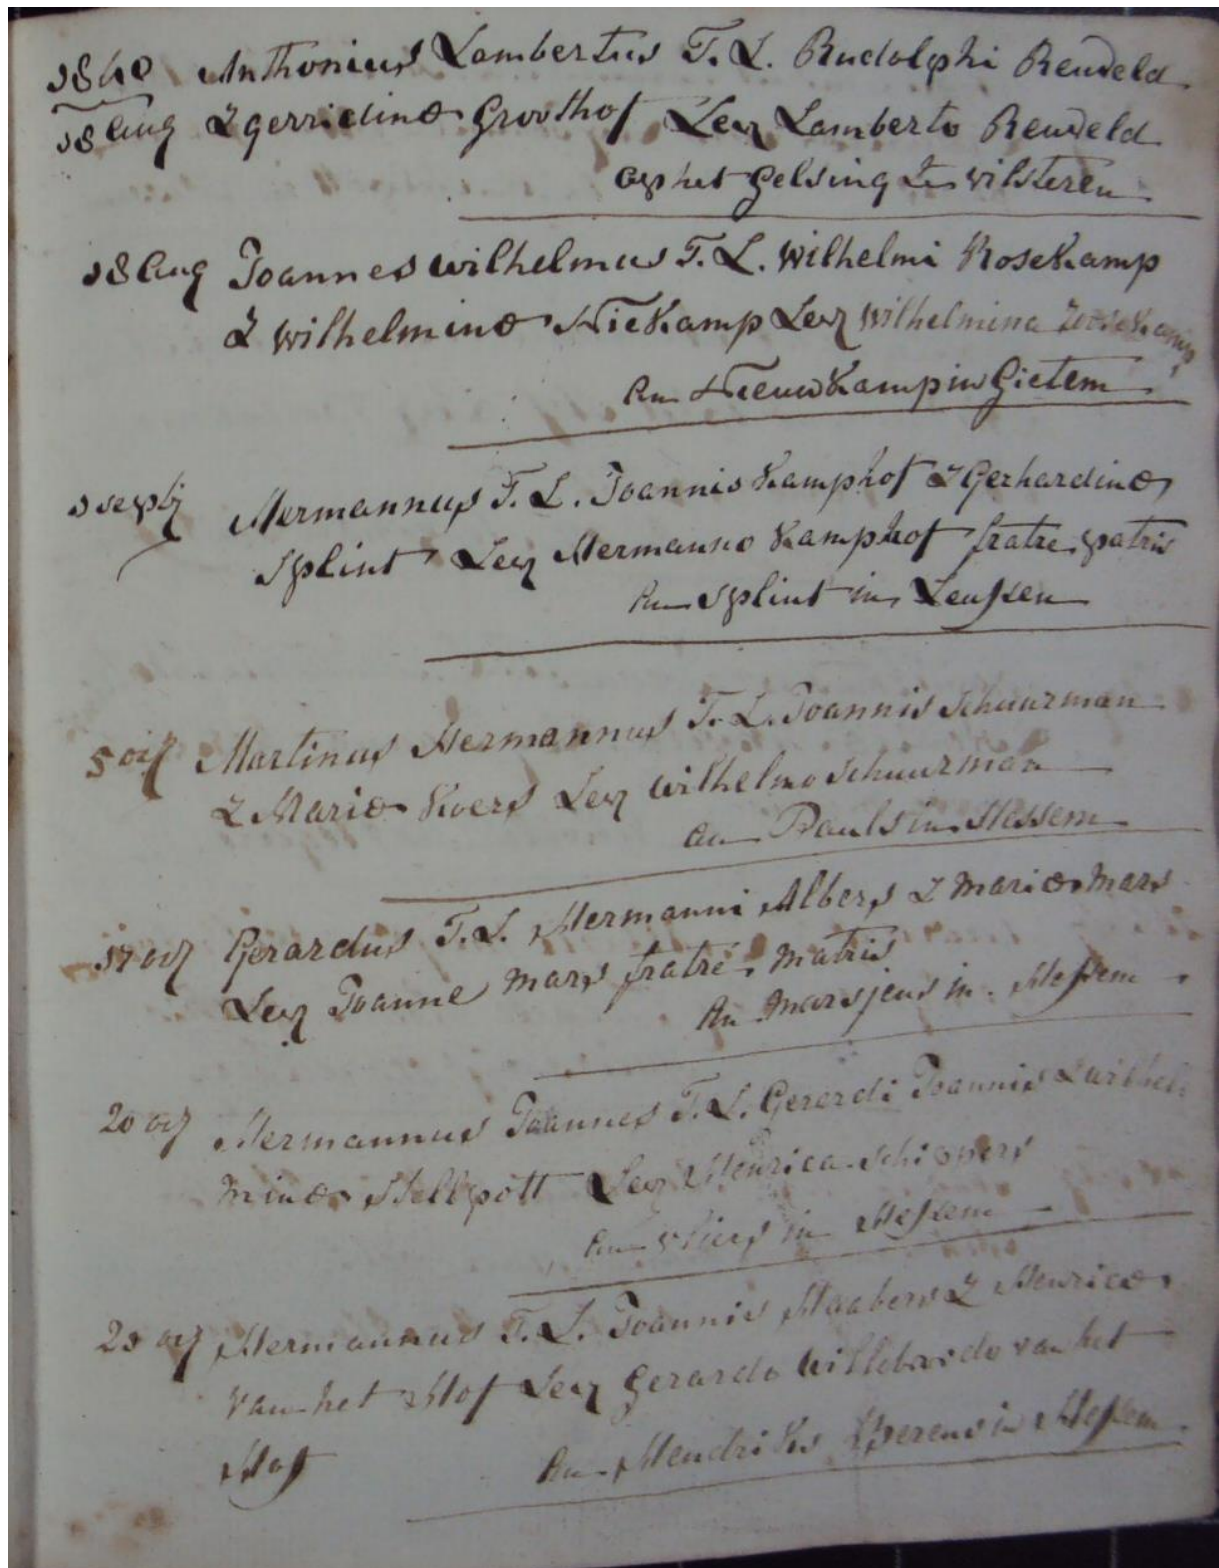 1840 Anthonius Lambertus F. L. Rudolphi Reuveld
18 Aug & gerridinæ Groothof Lev Lamberto Reuveld
op het Gelsing in vilsteren
18 Aug Joannes wilhelmus F. L. Wilhelmi Rosekamp
& Wilhelminæ Niekamp Lev Wilhelmina
An Nieuwkamp in Gietem
1 septj Hermannus F. L. Joannis Kamphof & Gerhardinæ
Splint Lev Hermanno Kamphof fratre patris
An Splint in Leussen
5 oct Martinus Hermannus F. L. Joannis Schuurman
& Mariæ Koers Lev wilhelmo Schuurman
An Pauls in Hessem
17 oct Gerardus F. L. Hermanni Albers & Mariæ Mars
Lev Joanne Mars fratre matris
An Marsjens in Hessem
20 oct Hermannus Joannes F. L. Gerardi Joannis & wilhel
minæ Hellpott Lev Henrica Schippers
An in Hessem
23 oct Hermannus F. L. Joannis & Henricæ
Van het Hof Lev Gerardo Willebrordo van het
Hof An Hendriks in Hessem